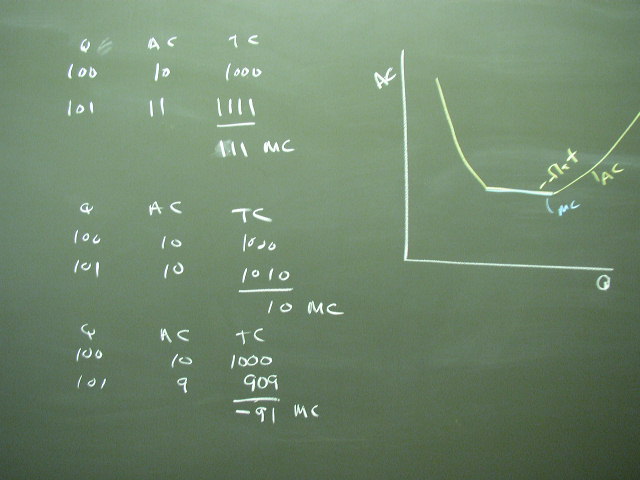 Q AC TC
100 10 1000
101 11 1111
111 MC
Q AC TC
100 10 1000
101 10 1010
10 MC
Q AC TC
100 10 1000
101 9 909
-91 MC
AC
flat
AC
MC
Q